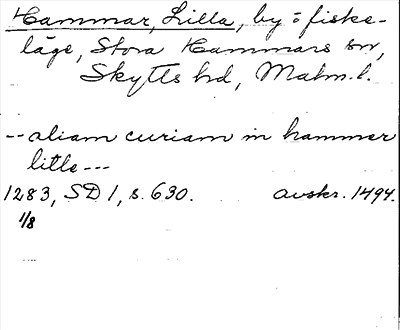 Hammar, Lilla, by o fiske-
läge, Stora Hammars sn,
Skytts hd, Malm.l.
-- aliam curiam in hammer
litle ---
1283, SD 1, s. 630. avskr. 1494.
1/8